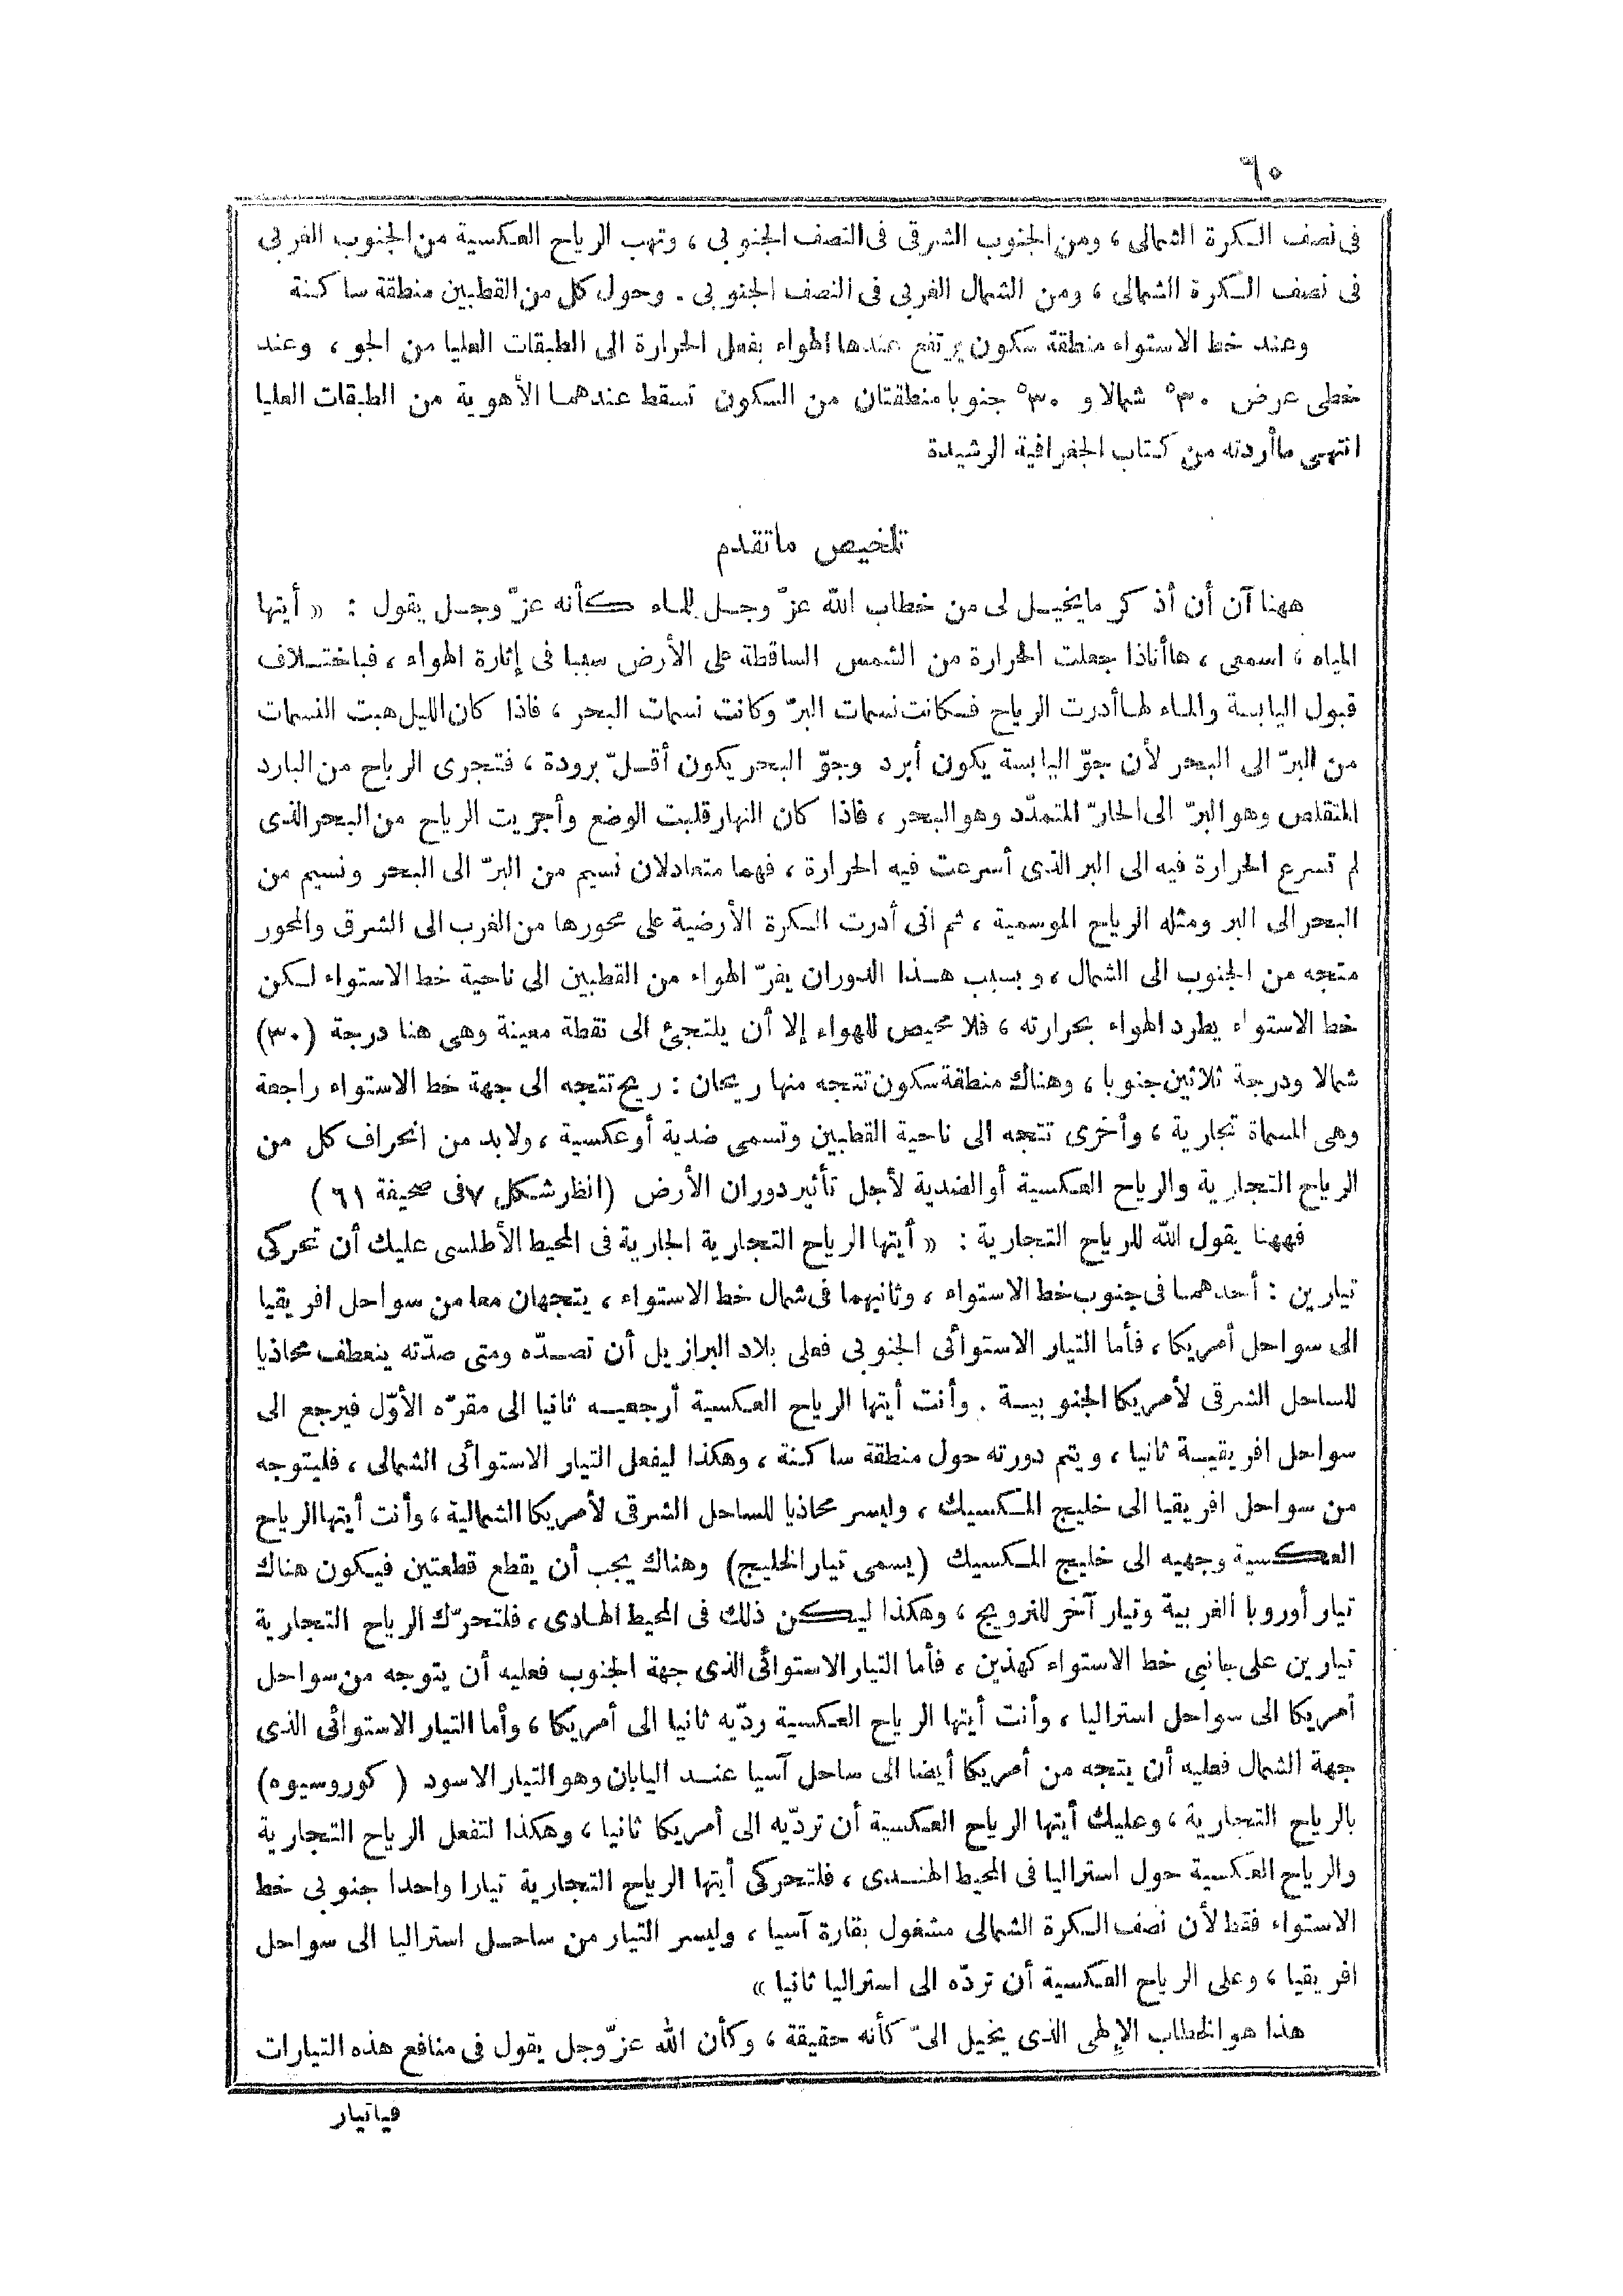 ٦٠
فى نصف الكرة الشمالى ، ومن الجنوب الشرقى فى النصف الجنوبى ، وتهب الرياح العكسية من الجنوب الغربى
فى نصف الكرة الشمالى ، ومن الشمال الغربى فى النصف الجنوبى . وحول كل من القطبين منطقة ساكنة
وعند خط الاستواء منطقة سكون يرتفع عندها الهواء بفعل الحرارة الى الطبقات العليا من الجو ، وعند
خطى عرض ٣٠° شمالا و ٣٠° جنوبا منطقتان من السكون تسقط عندهما الأهوية من الطبقات العليا
انتهى ما أردته من كتاب الجغرافية الرشيدة
تلخيص ماتقدم
ههنا آن أن أذكر مايخيل لى من خطاب الله عزّ وجل للماء كأنه عزّ وجل يقول : « أيتها
المياه ، اسمعى ، هاأناذا جعلت الحرارة من الشمس الساقطة على الأرض سببا فى إثارة الهواء ، فباختلاف
قبول اليابسة والماء لها أدرت الرياح فكانت نسمات البرّ وكانت نسمات البحر ، فاذا كان الليل هبت النسمات
من البرّ الى البحر لأن جوّ اليابسة يكون أبرد وجوّ البحر يكون أقلّ برودة ، فتجرى الرياح من البارد
المتقلص وهو البرّ الى الحارّ المتمدّد وهو البحر ، فاذا كان النهار قلبت الوضع وأجريت الرياح من البحر الذى
لم تسرع الحرارة فيه الى البر الذى أسرعت فيه الحرارة ، فهما متعادلان نسيم من البرّ الى البحر ونسيم من
البحر الى البر ومثله الرياح الموسمية ، ثم انى أدرت الكرة الأرضية على محورها من الغرب الى الشرق والمحور
متجه من الجنوب الى الشمال ، وبسبب هذا الدوران يفرّ الهواء من القطبين الى ناحية خط الاستواء لكن
خط الاستواء يطرد الهواء بحرارته ، فلا محيص للهواء إلا أن يلتجئ الى نقطة معينة وهى هنا درجة (٣٠)
شمالا ودرجة ثلاثين جنوبا ، وهناك منطقة سكون تتجه منها ريحان : ريح تتجه الى جهة خط الاستواء راجعة
وهى المسماة تجارية ، وأخرى تتجه الى ناحية القطبين وتسمى ضدية أو عكسية ، ولابد من انحراف كل من
الرياح التجارية والرياح العكسية أو الضدية لأجل تأثير دوران الأرض (انظر شكل ٧ فى صحيفة ٦١)
فههنا يقول الله للرياح التجارية : « أيتها الرياح التجارية الجارية فى المحيط الأطلسى عليك أن تحركى
تيارين : أحدهما فى جنوب خط الاستواء ، وثانيهما فى شمال خط الاستواء ، يتجهان معا من سواحل افريقيا
الى سواحل أمريكا ، فأما التيار الاستوائى الجنوبى فعلى بلاد البرازيل أن تصدّه ومتى صدّته ينعطف محاذيا
للساحل الشرقى لأمريكا الجنوبية . وأنت أيتها الرياح العكسية أرجعيه ثانيا الى مقرّه الأوّل فيرجع الى
سواحل افريقية ثانيا ، ويتم دورته حول منطقة ساكنة ، وهكذا ليفعل التيار الاستوائى الشمالى ، فليتوجه
من سواحل افريقيا الى خليج المكسيك ، وليسر محاذيا للساحل الشرقى لأمريكا الشمالية ، وأنت أيتها الرياح
العكسية وجهيه الى خليج المكسيك (يسمى تيار الخليج) وهناك يجب أن يقطع قطعتين فيكون هناك
تيار أوروبا الغربية وتيار آخر للنرويج ، وهكذا ليكن ذلك فى المحيط الهادى ، فلتحرّك الرياح التجارية
تيارين على جانبى خط الاستواء كهذين ، فأما التيار الاستوائى الذى جهة الجنوب فعليه أن يتوجه من سواحل
أمريكا الى سواحل استراليا ، وأنت أيتها الرياح العكسية ردّيه ثانيا الى أمريكا ، وأما التيار الاستوائى الذى
جهة الشمال فعليه أن يتجه من أمريكا أيضا الى ساحل آسيا عند اليابان وهو التيار الاسود ( كوروسيوه)
بالرياح التجارية ، وعليك أيتها الرياح العكسية أن تردّيه الى أمريكا ثانيا ، وهكذا لتفعل الرياح التجارية
والرياح العكسية حول استراليا فى المحيط الهندى ، فلتحركى أيتها الرياح التجارية تيارا واحدا جنوبى خط
الاستواء فقط لأن نصف الكرة الشمالى مشغول بقارة آسيا ، وليسر التيار من ساحل استراليا الى سواحل
افريقيا ، وعلى الرياح العكسية أن تردّه الى استراليا ثانيا »
هذا هو الخطاب الإلهى الذى يخيل الىّ كأنه حقيقة ، وكأن الله عزّ وجل يقول فى منافع هذه التيارات
فياتيار